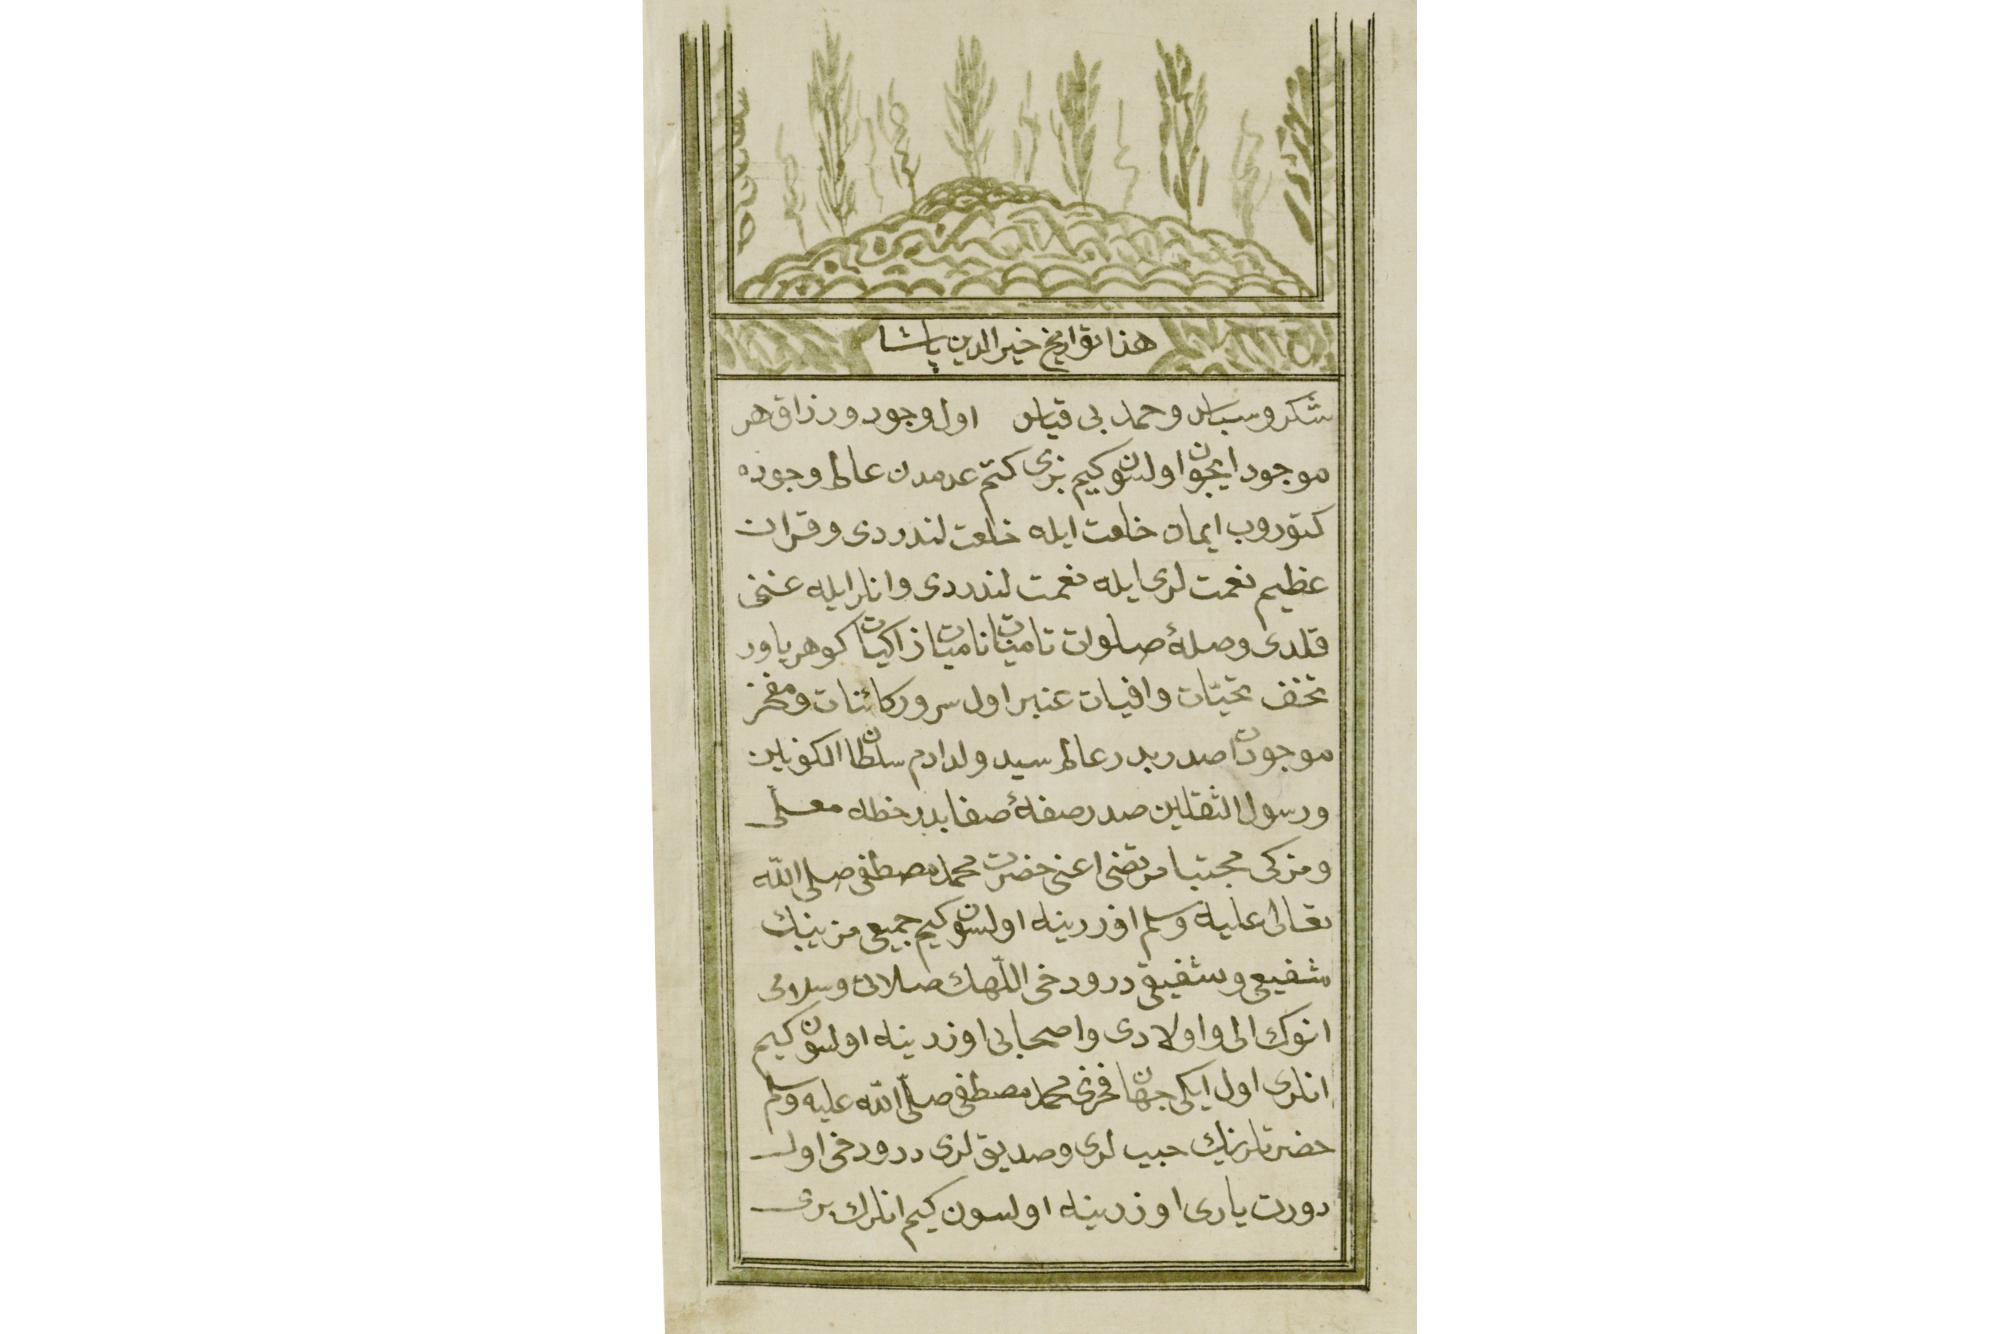 هذا تواريخ خيرالدين پاشا
شكر و سپاس و حمد بى قياس اول وجود و رزاق هر
موجود ايچون اولسون كيم بزى كتم عدمدن عالم وجوده
كتوروب ايمان خلعت ايله خلعت لندردى و قران
عظيم نعمت لرى ايله نعمت لندردى وانلر ايله غنى
قلدى وصلۀ صلوات تاميات ناميات زاكيات كوهر ياور
تحف تحيّات وافيات عنبر اول سرور كائنات و مفخر
موجودات صدر بدر عالم سيد ولد ادم سلطان الكونين
و رسول الثقلين صدر صفۀ صفا بدر خطه معلّى
و مزكى مجتبا مرتضى اعنى حضرت محمد مصطفى صلى اللّه
تعالى عليه وسلم اوزرينه اولسون كيم جميعمزينك
شفيعى و شفيقى درو دخى اللّهك صلاتى و سلامى
انوك الى و اولادى و اصحابى اوزرينه اولسون كيم
انلرى اول ايكى جهان فخرى محمد مصطفى صلّى اللّه عليه وسلم
حضرتلرينك حبيب لرى و صديق لرى درو دخى اول
دورت يارى اوزرينه اولسون كيم انلرك برى